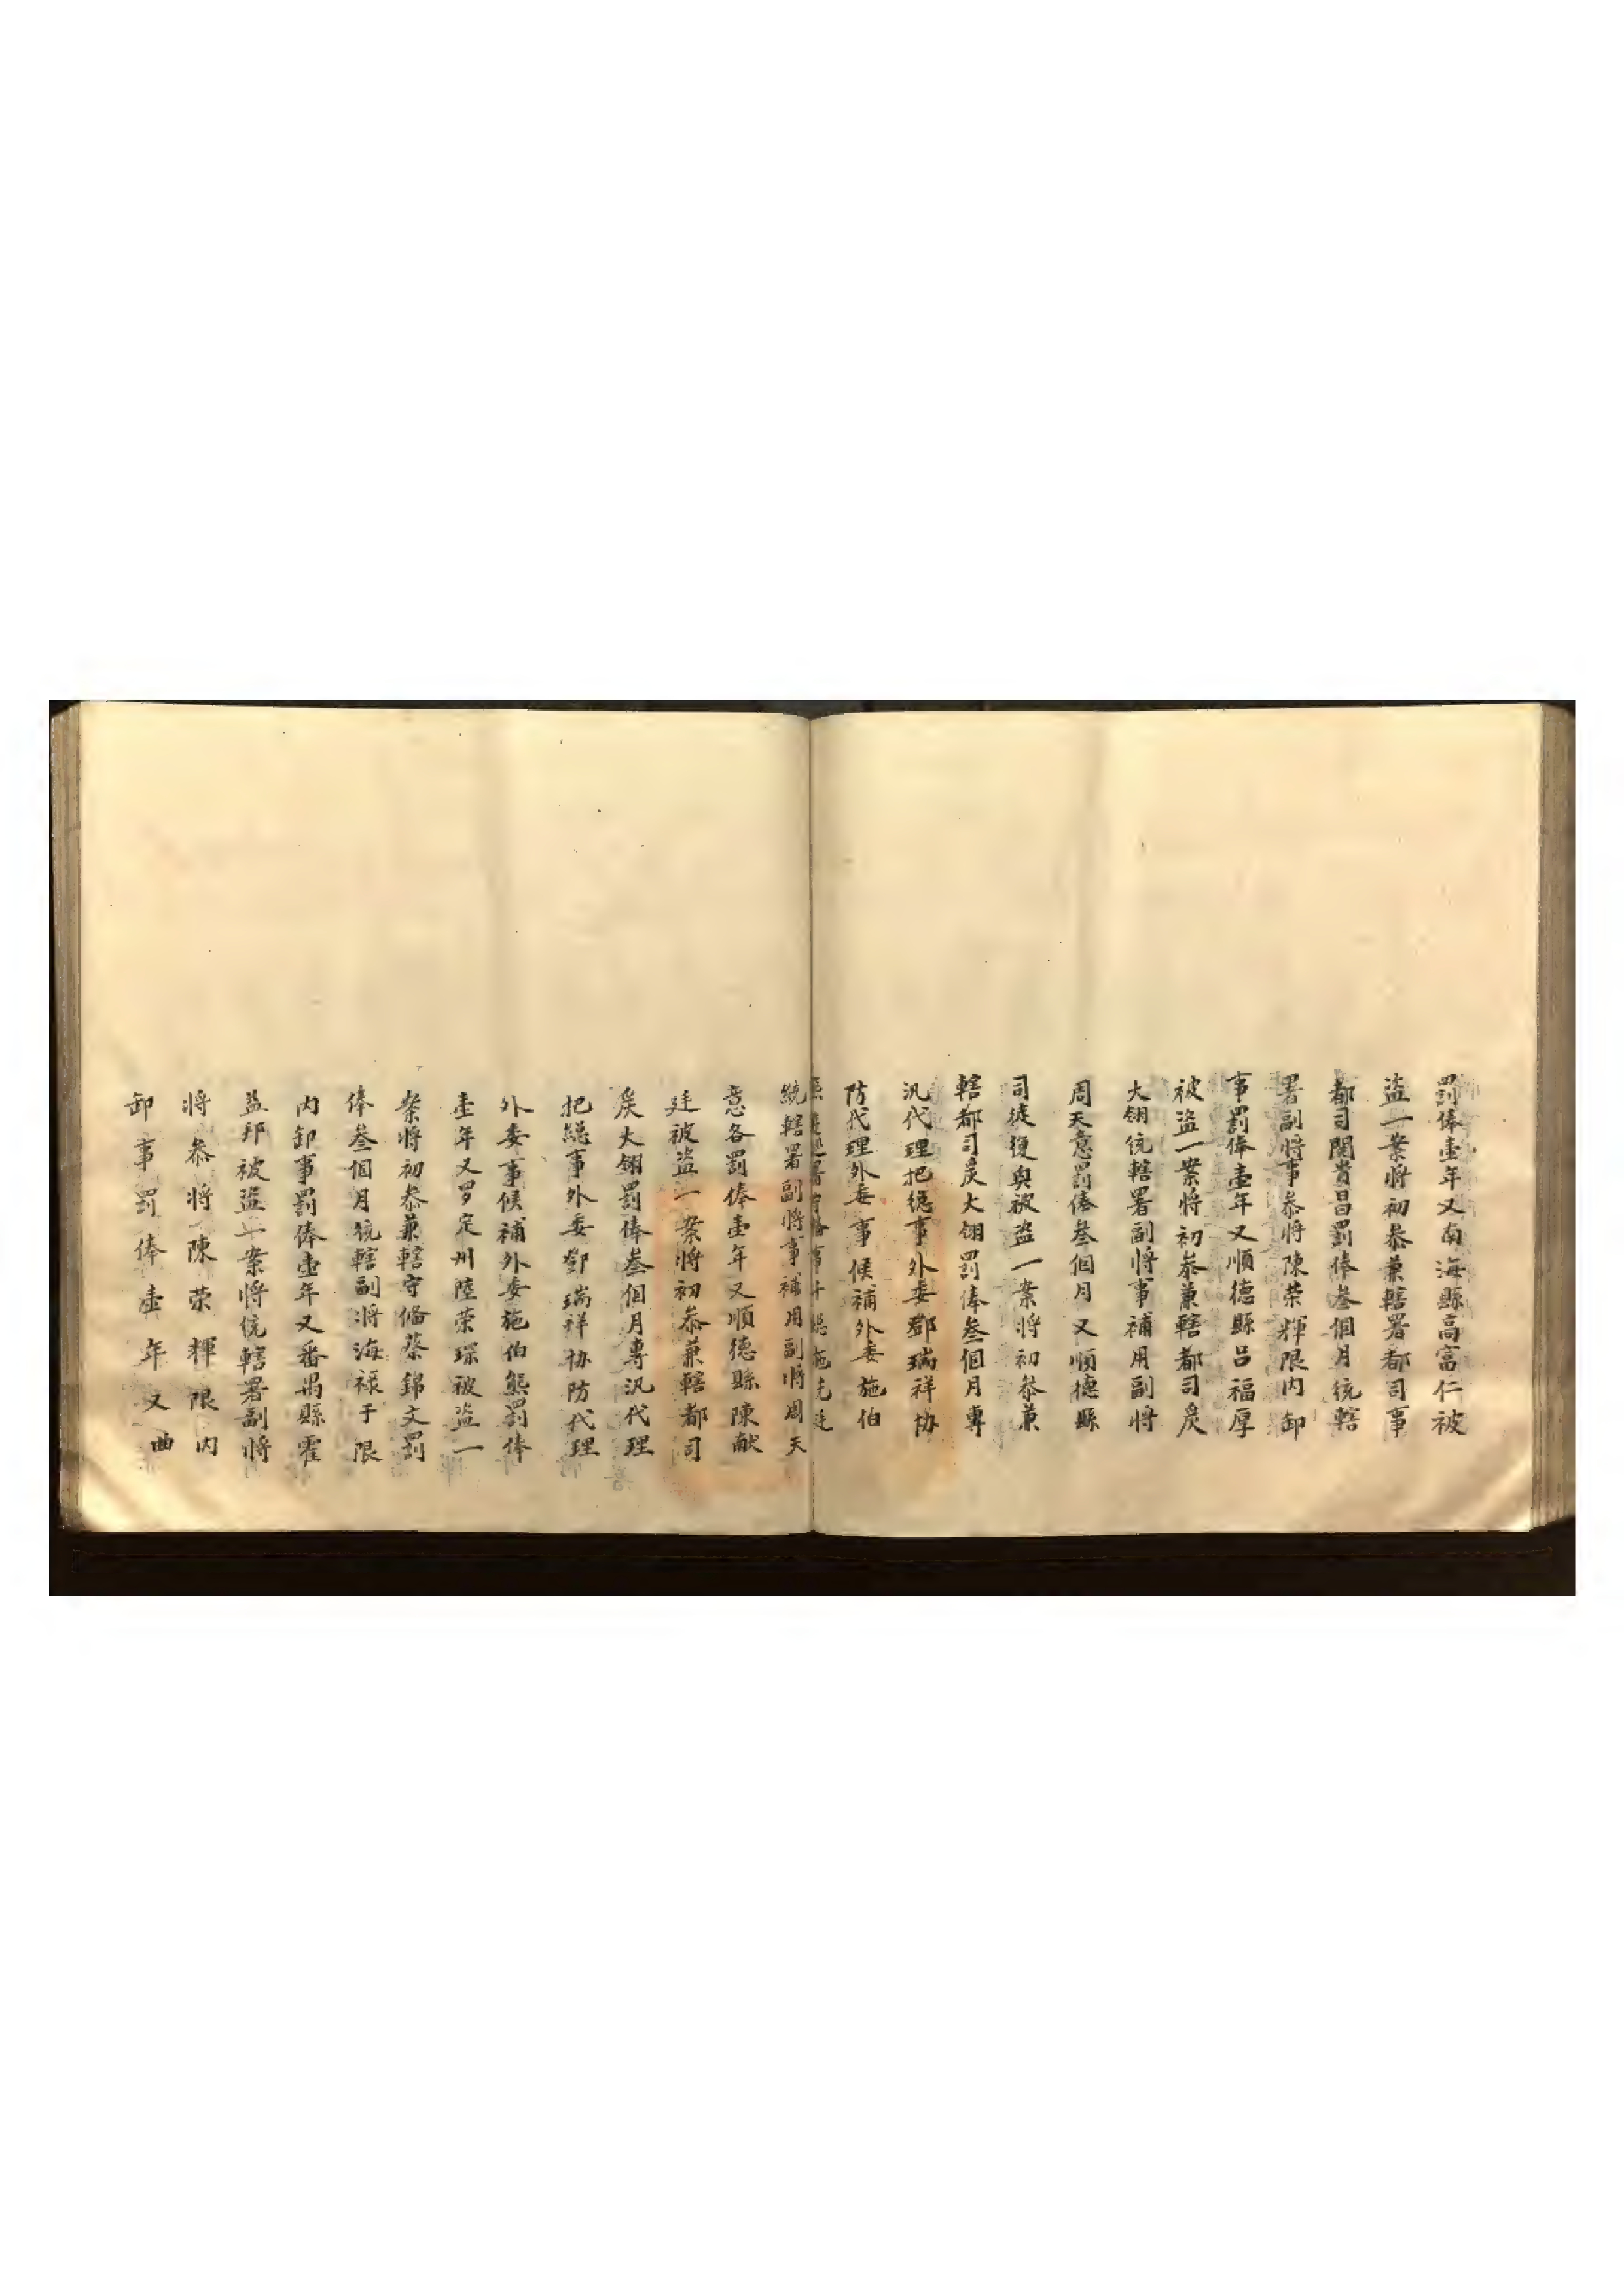 罰俸壹年又南海縣高富仁被
盜一案將初叅兼轄署都司事
都司關貴昌罰俸叁個月統轄
署副將事叅將陳荣輝限内卸
事罰俸壹年又順德縣呂福厚
被盜一案將初叅兼轄都司
大翎統轄署副將事補用副將
周天意罰俸叁個月又順德縣
司徒復奥被盜一案將初叅兼
轄都司大翎罰俸叁個月專
汛代理把總事外委鄧瑞祥協
防代理外委事候補外委施伯
統轄署副將事補用副將周天
意各罰俸壹年又順德縣陳献
廷被盜一案將初叅兼轄都司
大翎罰俸叁個月專汛代理
把總事外委鄧瑞祥协防代理
外委事候補外委施伯熊罰俸
壹年又罗定州陸荣琛被盜一
案將初叅兼轄守俻蔡錦文罰
俸叁個月統轄副將海禄于限
内卸事罰俸壹年又番禺縣霍
益邦被盜一案將統轄署副將
將叅將陳荣輝限内
卸事罰俸壹年又曲